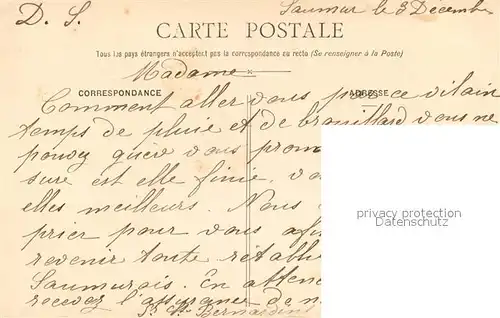 D. S. Saumur le 3 Décembre
CARTE POSTALE
Tous les pays étrangers n'acceptent pas la correspondance au recto (Se renseigner à la Poste)
Madame
CORRESPONDANCE ADRESSE
Comment aller vous par ce vilain
temps de pluie et de brouillard vous ne
pouvez vous prom
sure est elle finie. vo
elles meilleurs. Nous
prier pour vous afin
revenir toute rétabli
Saumurois. En atten
recevez l'assurance de n
Sr Bernardin
privacy protection
Datenschutz